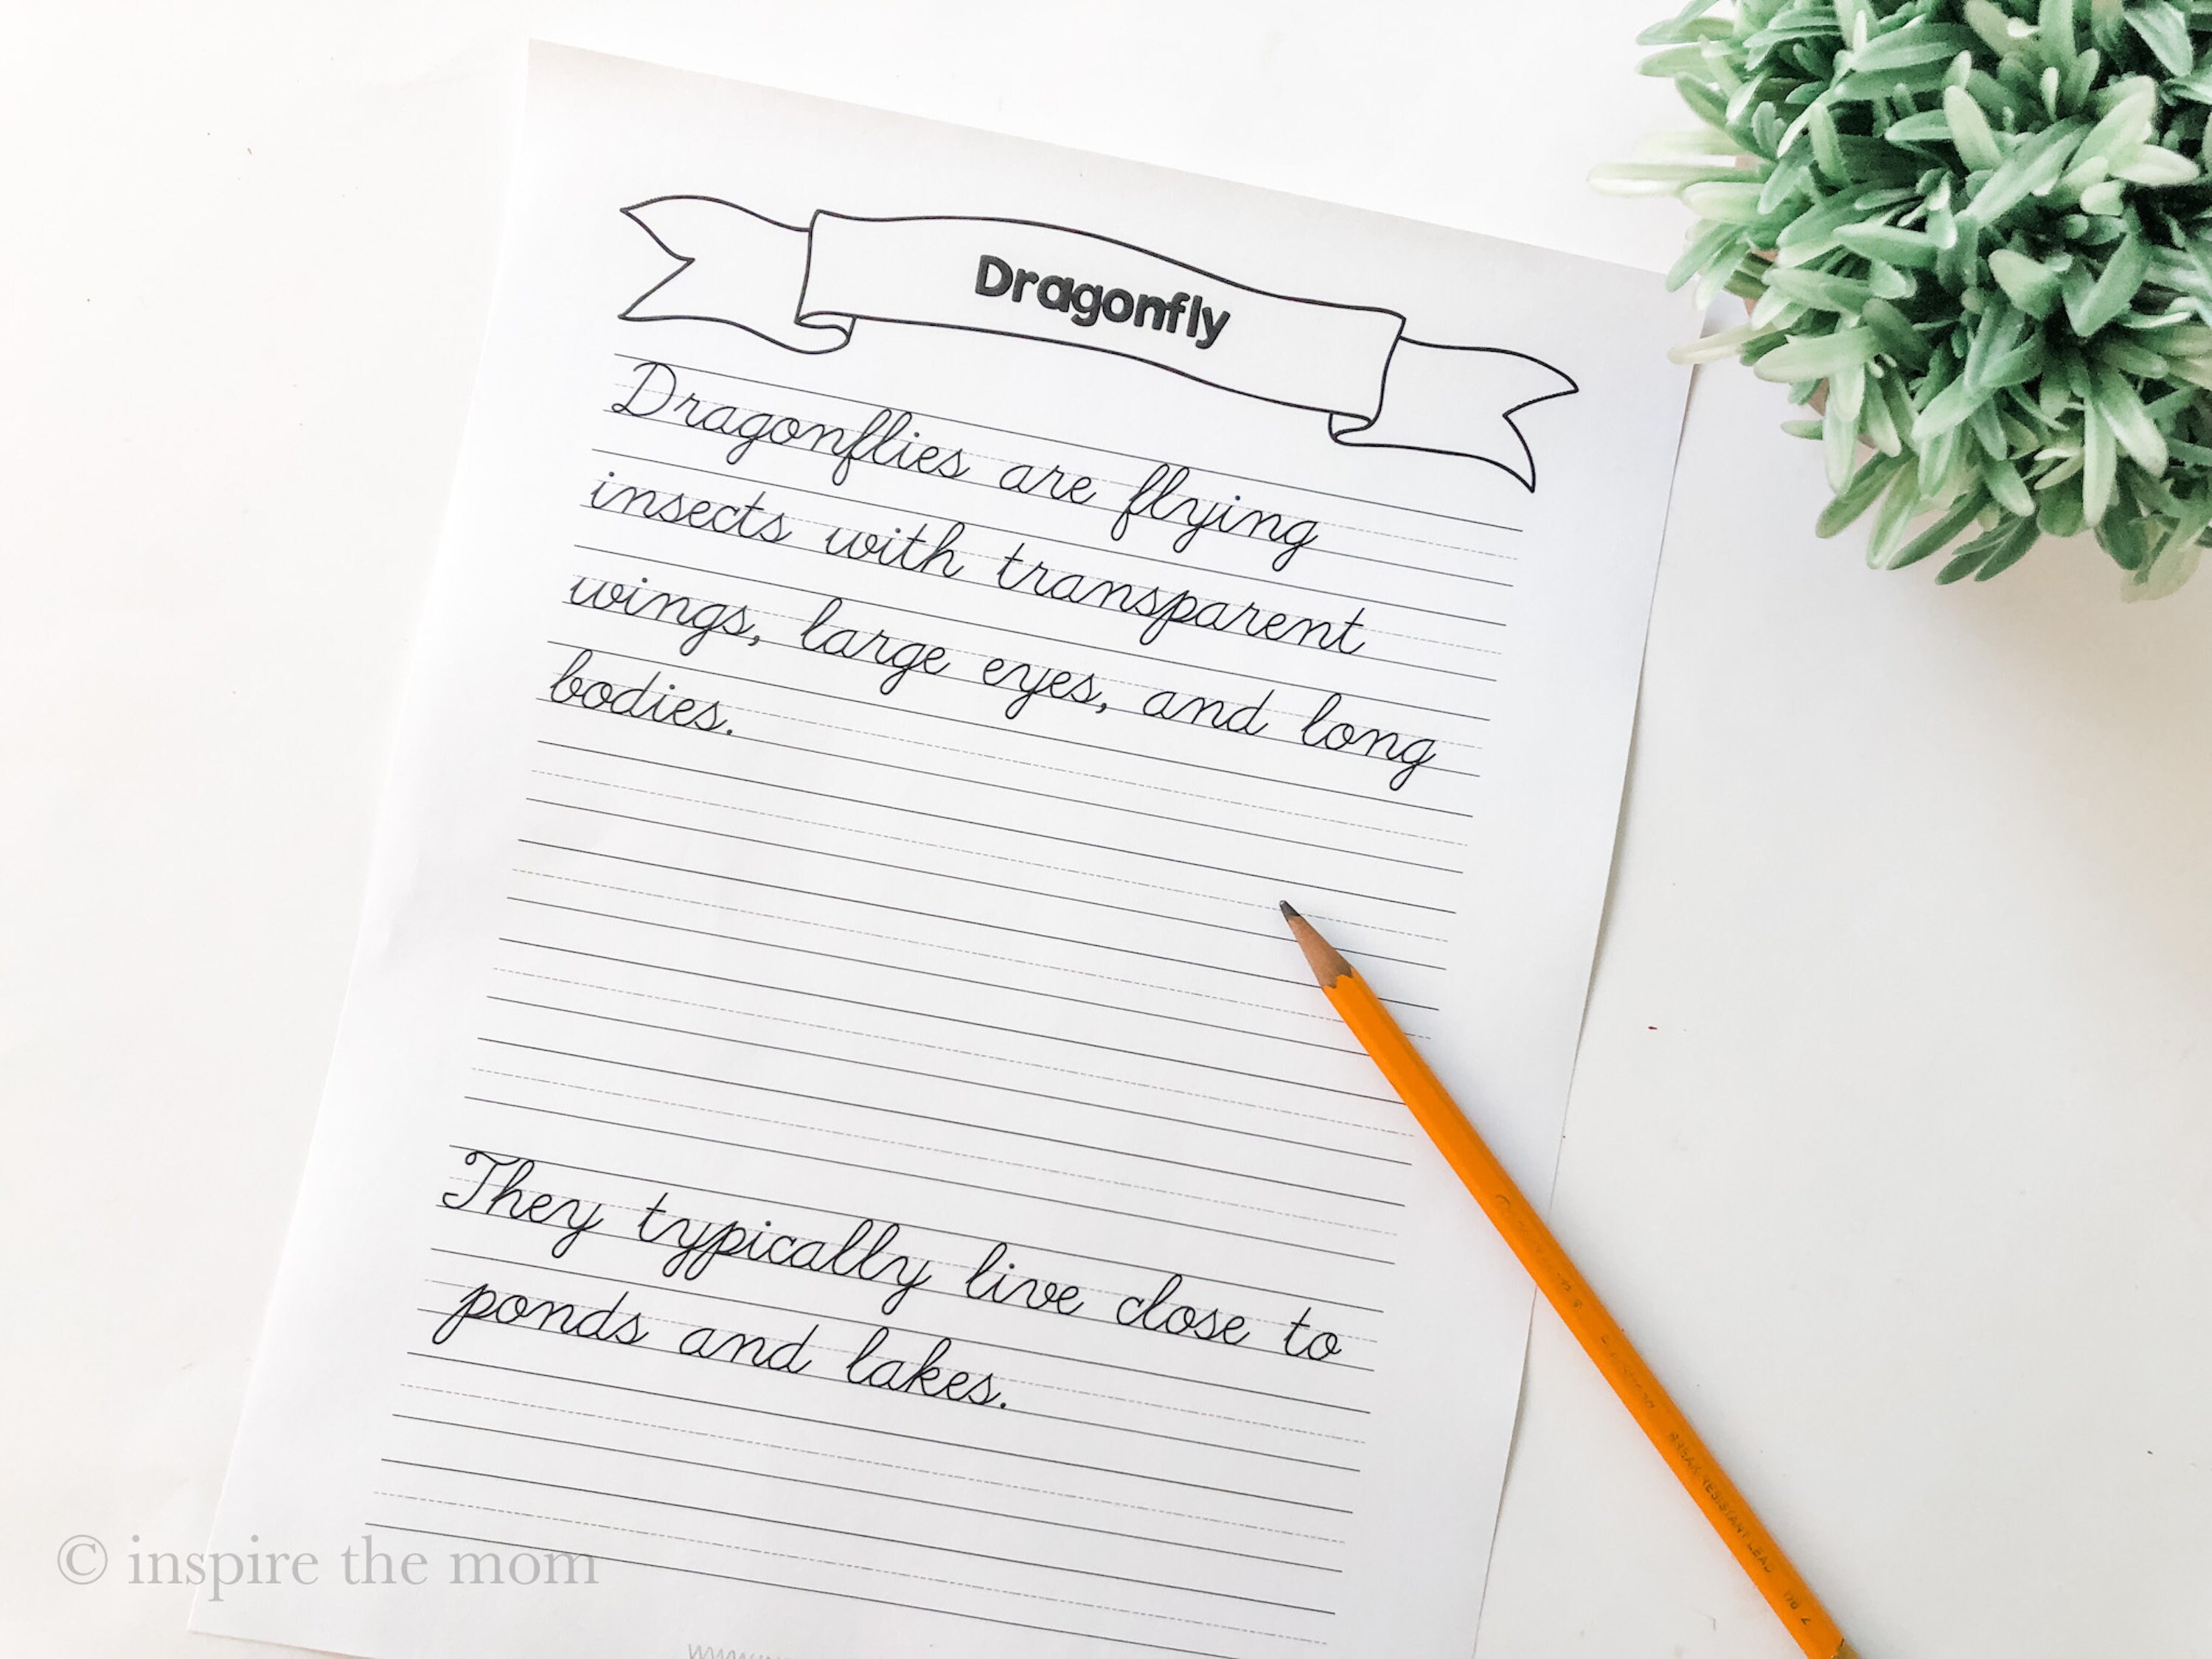 Dragonfly
Dragonflies are flying
insects with transparent
wings, large eyes, and long
bodies.
They typically live close to
ponds and lakes.
BREAK RESISTANT LEAD
© inspire the mom